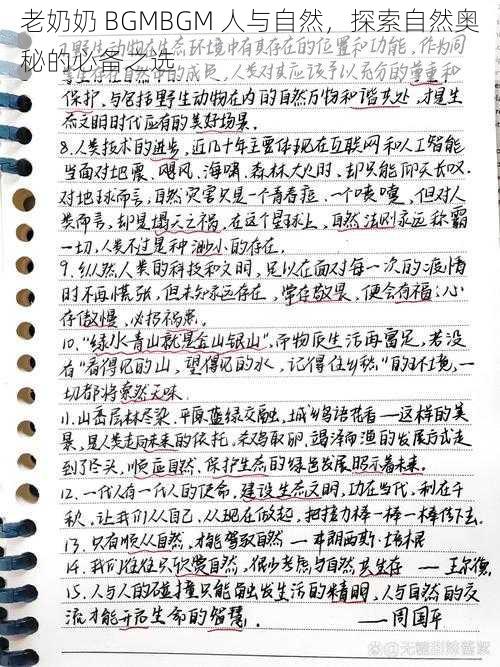 老奶奶 BGMBGM 人与自然，探索自然奥
秘的必备之选
7.野生动物在生态环境中有其存在的位置和功能，作为同
的成员，人类对其应该予以充分的尊重和
保护，与包括野生动物在内的自然万物和谐共处，才是生
态文明时代应有的美好场景。
8.人类技术的进步，近几十年主要体现在互联网和人工智能
当面对地震、飓风、海啸、森林大火时，却只能仰天长叹.
对地球而言，自然灾害只是一个青春痘、一个喷嚏，但对人
类而言，却是塌天之祸，在这个星球上，自然法则永远称霸
一切，人类不过是种渺小的存在。
9.纵然人类的科技和文明，足以在面对每一次的疫情
时不再慌张，但未知永远存在，常存敬畏，便会有福；心
存傲慢，必招祸患。
10.“绿水青山就是金山银山”，即物质生活再富足，若没
有“看得见的山，望得见的水，记得住乡愁”的环境，一
切都将索然无味.
11.山峦层林尽染，平原蓝绿交融，城乡鸟语花香——这样的美
景，是人类走向未来的依托，杀鸡取卵、竭泽而渔的发展方式走
到了尽头，顺应自然、保护生态的绿色发展昭示着未来。
12.一代人有一代人的使命，建设生态文明，功在当代，利在千
秋，让我们从自己、从现在做起，把接力棒一棒一棒传下去.
13.只有顺从自然，才能驾驭自然 — 弗朗西斯·培根
14.我们往往只欣赏自然，很少考虑与自然共生存 —— 王尔德.
15.人与人的碰撞只能触发生活的精明，人与自然的交
流才能开启生命的智慧. ——周国平